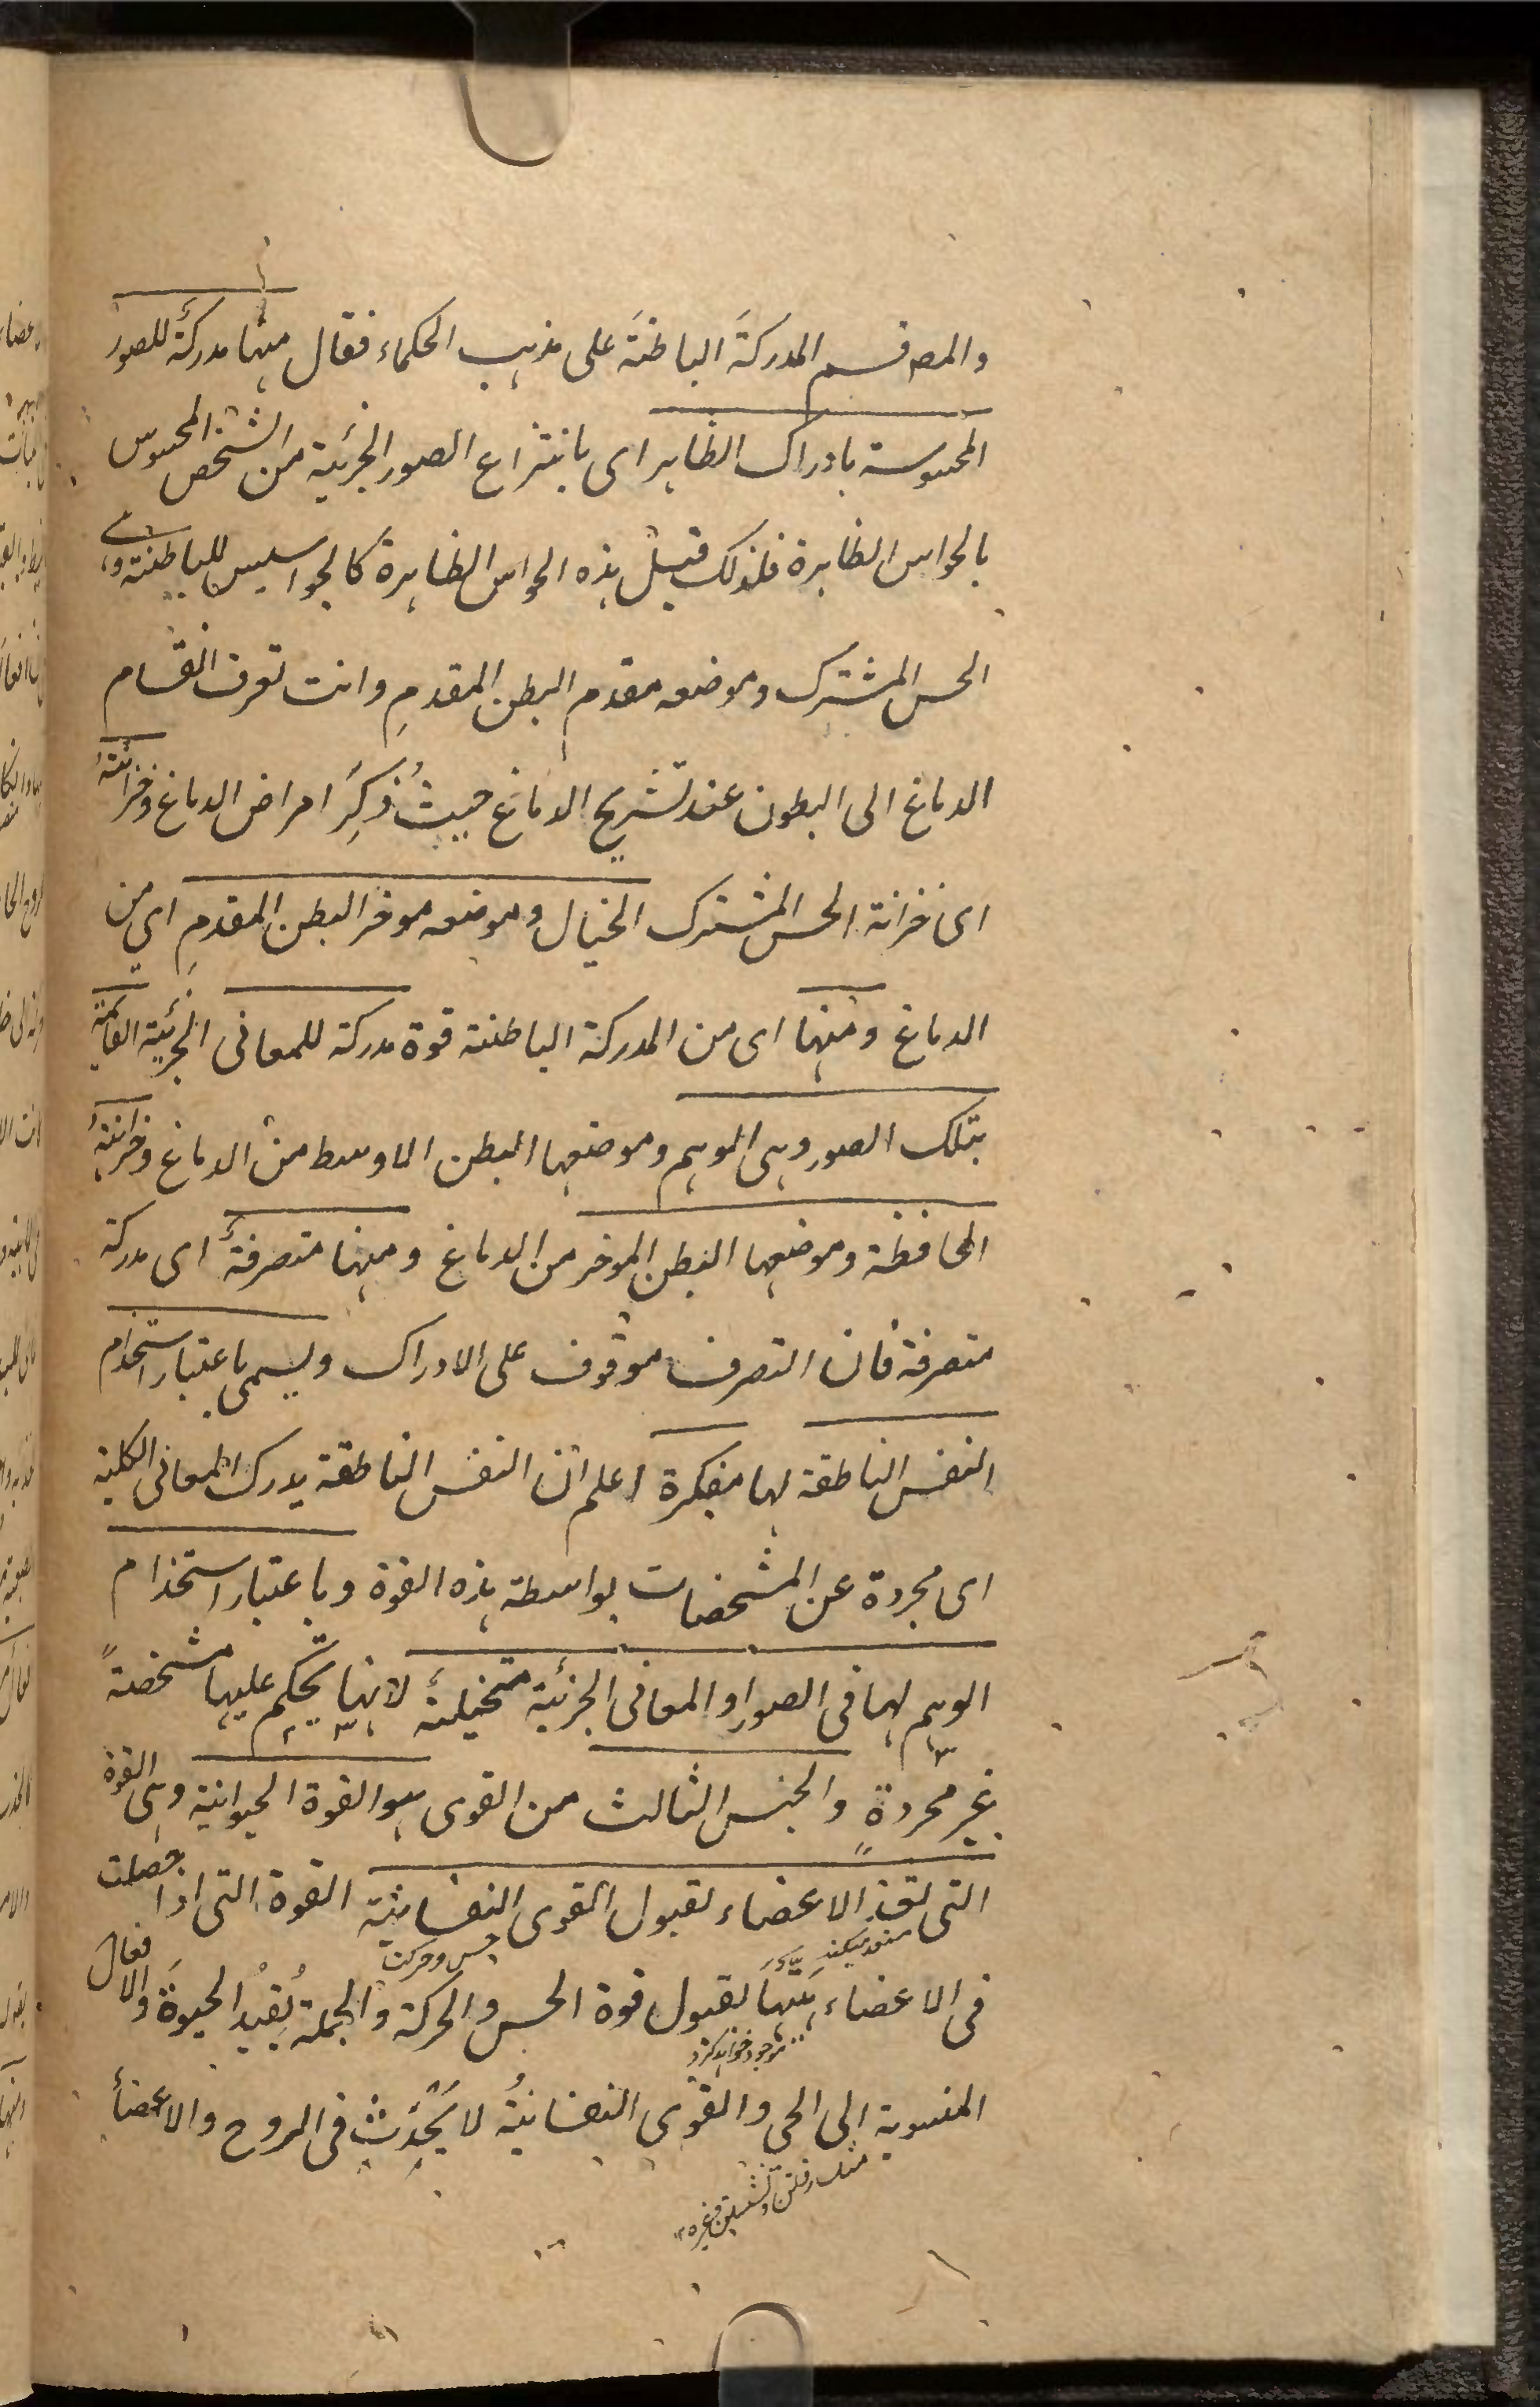 والمصـ قسم المدركةَ الباطنةَ على مذهب الحكماء فقال منها مدركةٌ للصور
المحسوسة بادراك الظاهر اى بانتزاع الصور الجزئية من الشخص المحسوس
بالحواس الظاهرة فلذلك قيل هذه الحواس الظاهرة كالجواسيس للباطنة وهى
الحس المشترك وموضعه مقدم البطن المقدمِ وانت تعرف انقسام
الدماغ الى البطون عند تشريح الدماغ حيث ذُكِرَ امراض الدماغ وخزانتهُ
اى خزانة الحس المشترك الخيال وموضعه موخر البطن المقدمِ اى من
الدماغ ومنها اى من المدركة الباطنة قوة مدركة للمعانى الجزئية القائمة
بتلك الصور وهى الوهم وموضعها البطن الاوسط من الدماغ وخزانتهُ
الحافظة وموضعها البطن الموخر من الدماغ ومنها متصرفةٌ اى مدركة
متصرفة فان التصرف موقوف على الادراك ويسمى باعتبار استخدام
النفس الناطقة لها مفكرة اعلم ان النفس الناطقة يدرك المعانى الكلية
اى مجردة عن المشخصات بواسطة هذه القوة وباعتبار استخدام
الوهم لها فى الصور او المعانى الجزئية متخيلةً لانها يحكم عليها مشخصةً
غير مجردةٍ والجنس الثالث من القوى هو القوة الحيوانية وهى القوة
التى تعد الاعضاء لقبول القوى النفسانية القوة التى اذا حصلت
حس وحركت
فى الاعضاء هيّئتها لقبول قوة الحس والحركة والجملة يُفيدُ الحيوةَ والافعالَ
موجود خواهد كرد
المنسوبة الى الحى والقوى النفسانيةُ لا يَحْدِثُ فى الروح والاعضاءِ
مثل رفتن ونشستن وغيره ١٢